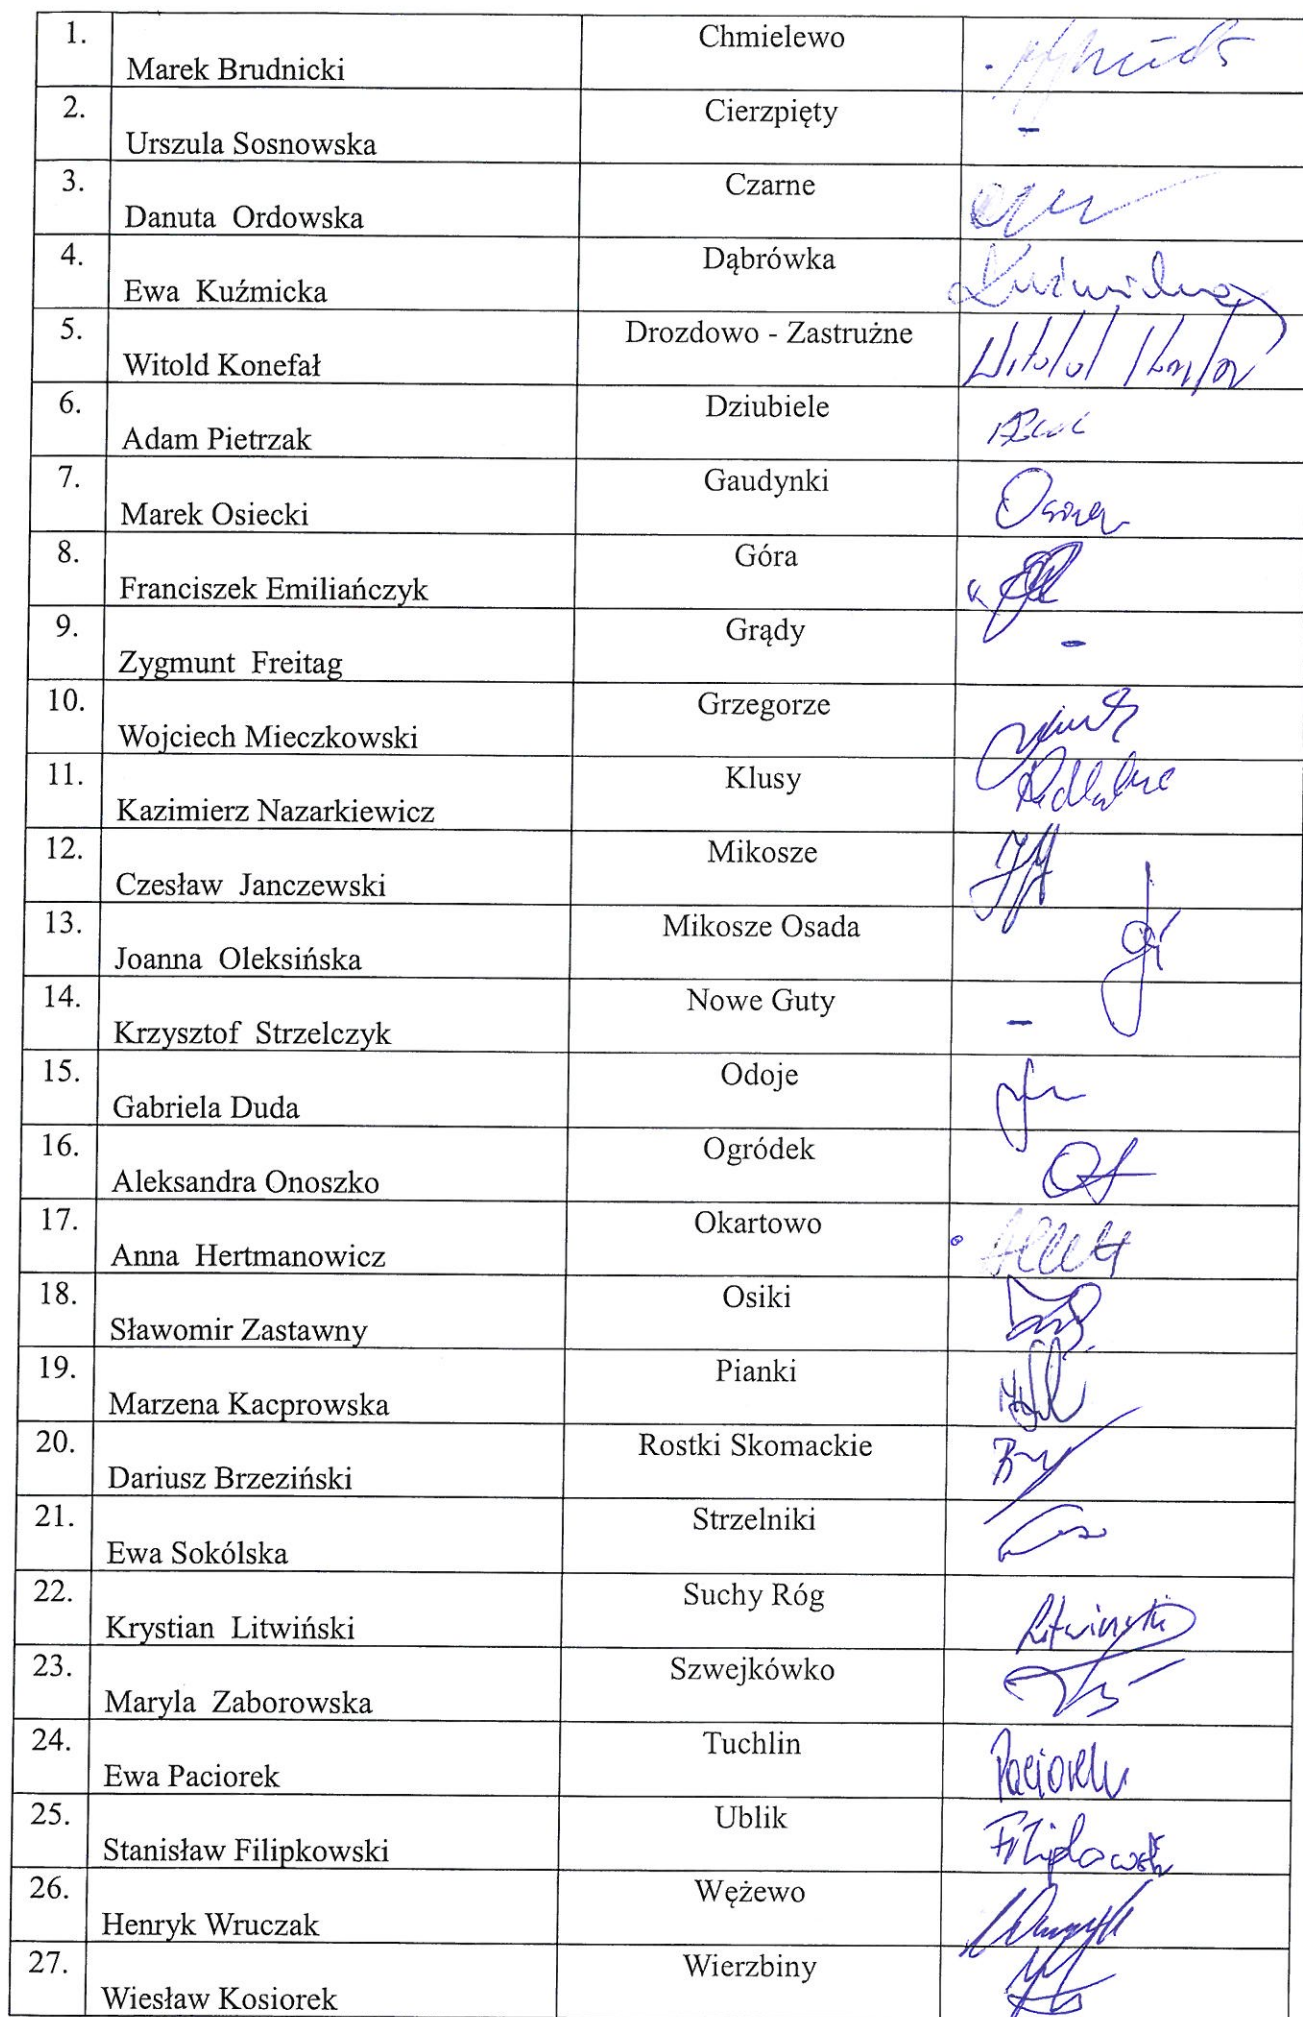 1. Marek Brudnicki Chmielewo
2. Urszula Sosnowska Cierzpięty -
3. Danuta Ordowska Czarne
4. Ewa Kuźmicka Dąbrówka
5. Witold Konefał Drozdowo - Zastrużne Witold
6. Adam Pietrzak Dziubiele
7. Marek Osiecki Gaudynki
8. Franciszek Emiliańczyk Góra
9. Zygmunt Freitag Grądy -
10. Wojciech Mieczkowski Grzegorze
11. Kazimierz Nazarkiewicz Klusy
12. Czesław Janczewski Mikosze
13. Joanna Oleksińska Mikosze Osada
14. Krzysztof Strzelczyk Nowe Guty -
15. Gabriela Duda Odoje
16. Aleksandra Onoszko Ogródek
17. Anna Hertmanowicz Okartowo
18. Sławomir Zastawny Osiki
19. Marzena Kacprowska Pianki
20. Dariusz Brzeziński Rostki Skomackie
21. Ewa Sokólska Strzelniki
22. Krystian Litwiński Suchy Róg Litwiński
23. Maryla Zaborowska Szwejkówko
24. Ewa Paciorek Tuchlin Paciorek
25. Stanisław Filipkowski Ublik Filipkowski
26. Henryk Wruczak Wężewo
27. Wiesław Kosiorek Wierzbiny